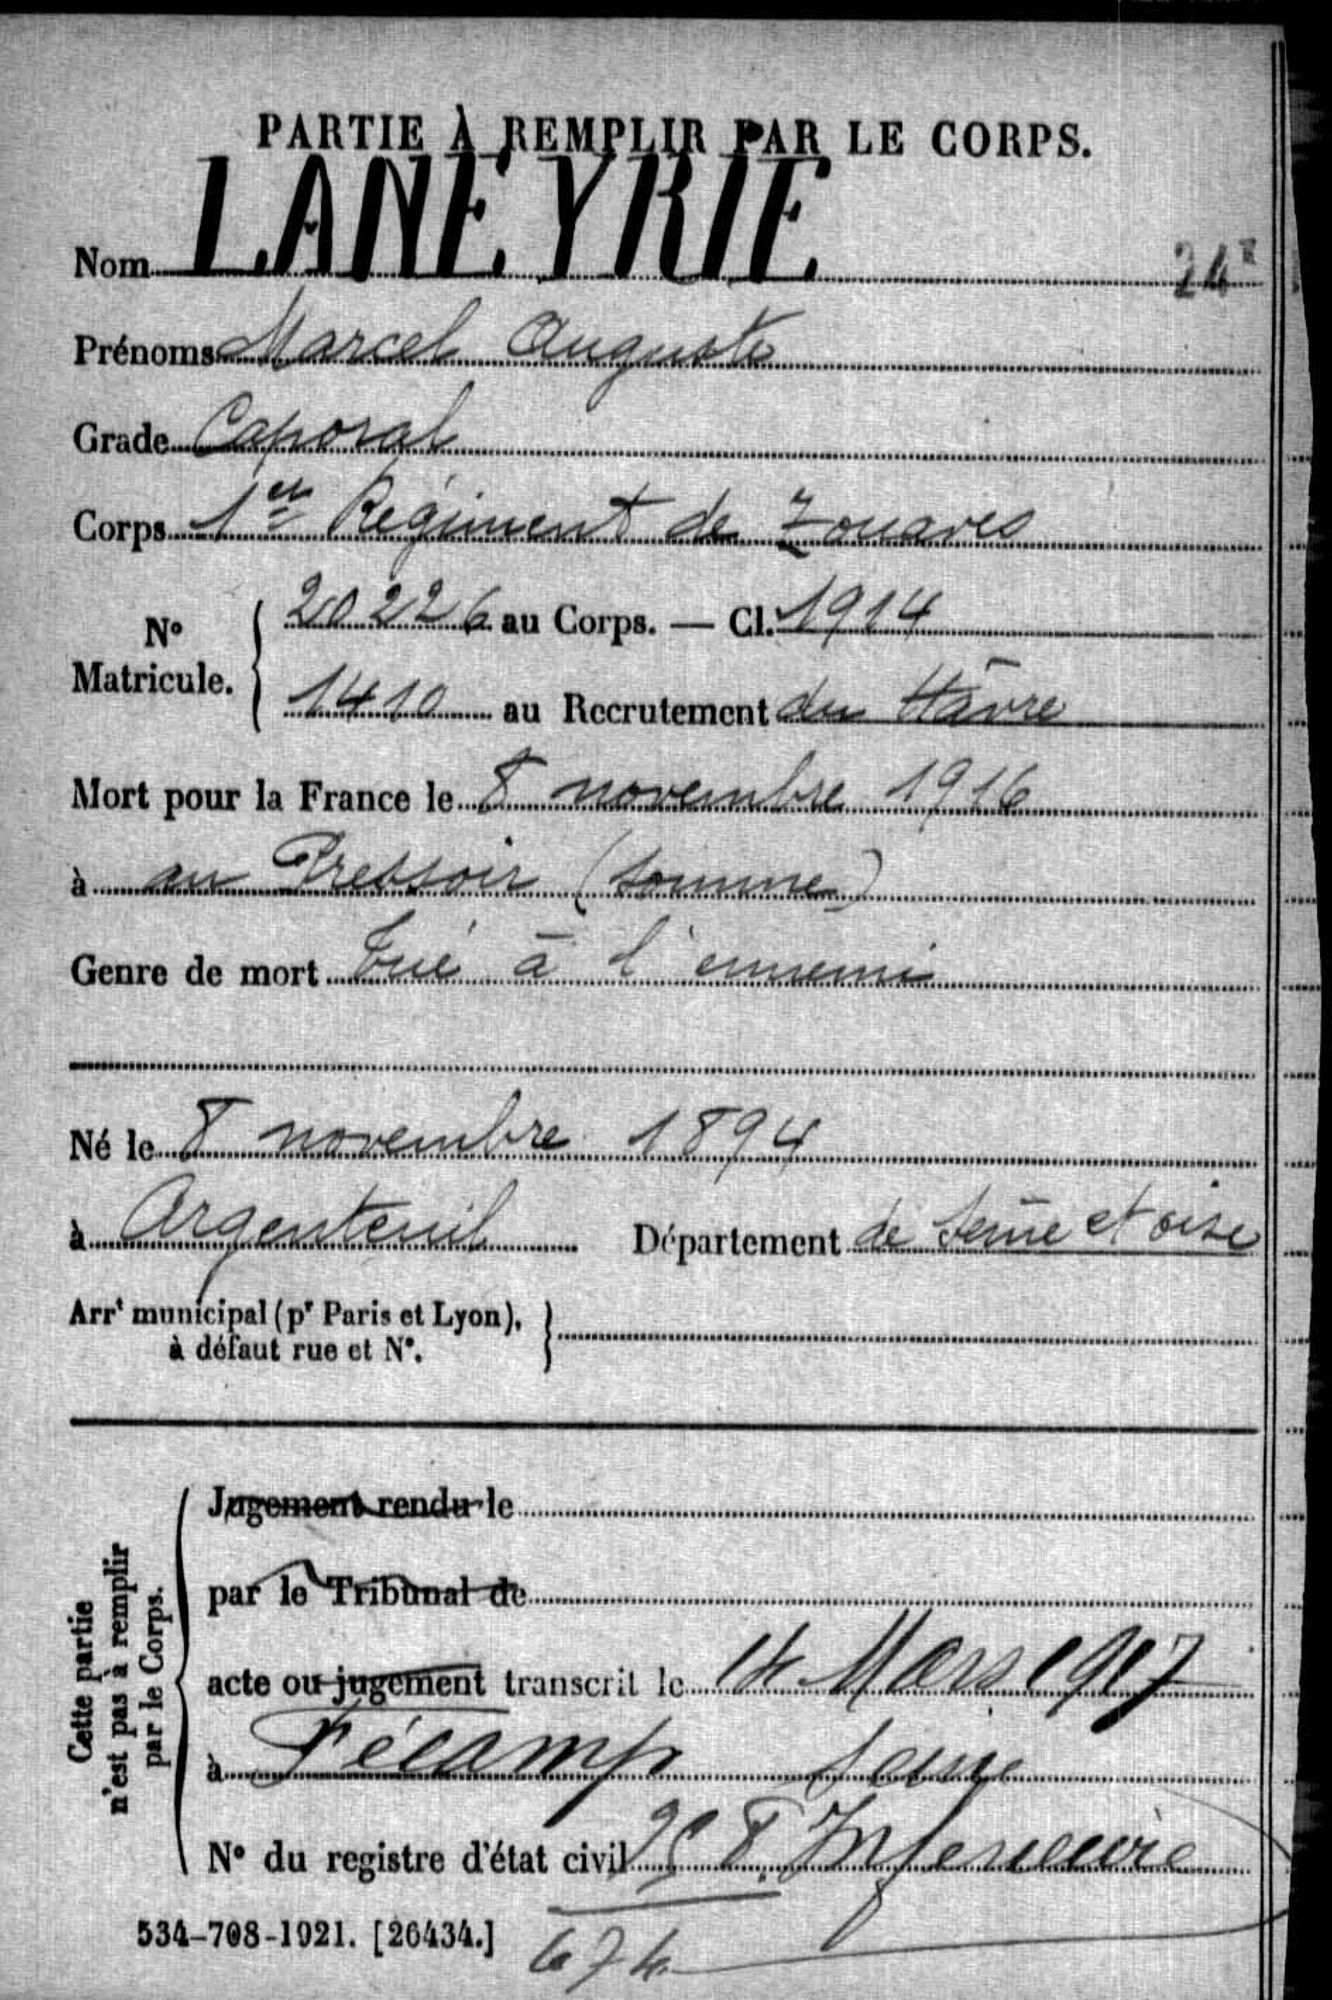 PARTIE À REMPLIR PAR LE CORPS.
Nom LANEYRIE
24
Prénoms Marcel Auguste
Grade Caporal
Corps 1er Régiment de Zouaves
N° Matricule. { 20226 au Corps. — Cl. 1914
1410 au Recrutement du Hâvre
Mort pour la France le 8 novembre 1916
à au Pressoir (Somme)
Genre de mort Tué à l'ennemi
Né le 8 novembre 1894
à Argenteuil Département de Seine et Oise
Arrt municipal (pr Paris et Lyon),
à défaut rue et N°.
Cette partie
n'est pas à remplir
par le Corps.
Jugement rendu le
par le Tribunal de
acte ou jugement transcrit le 14 Mars 1917
à Fécamp Seine
N° du registre d'état civil Inférieure
534-708-1921. [26434.]
674